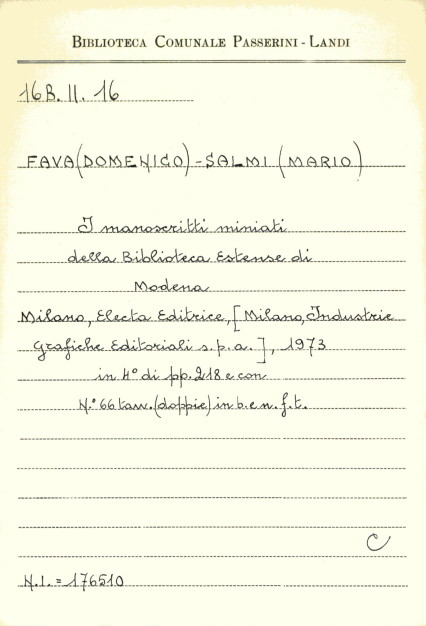 BIBLIOTECA COMUNALE PASSERINI - LANDI
16B. II. 16
FAVA (DOMENICO) - SALMI (MARIO)
I manoscritti miniati
della Biblioteca Estense di
Modena
Milano, Electa Editrice, [Milano, Industrie
Grafiche Editoriali s.p.a.], 1973
in 4° di pp. 218 e con
N.° 66 tavv. (doppie) in b. e n. f. t.
C
N. I. = 176510